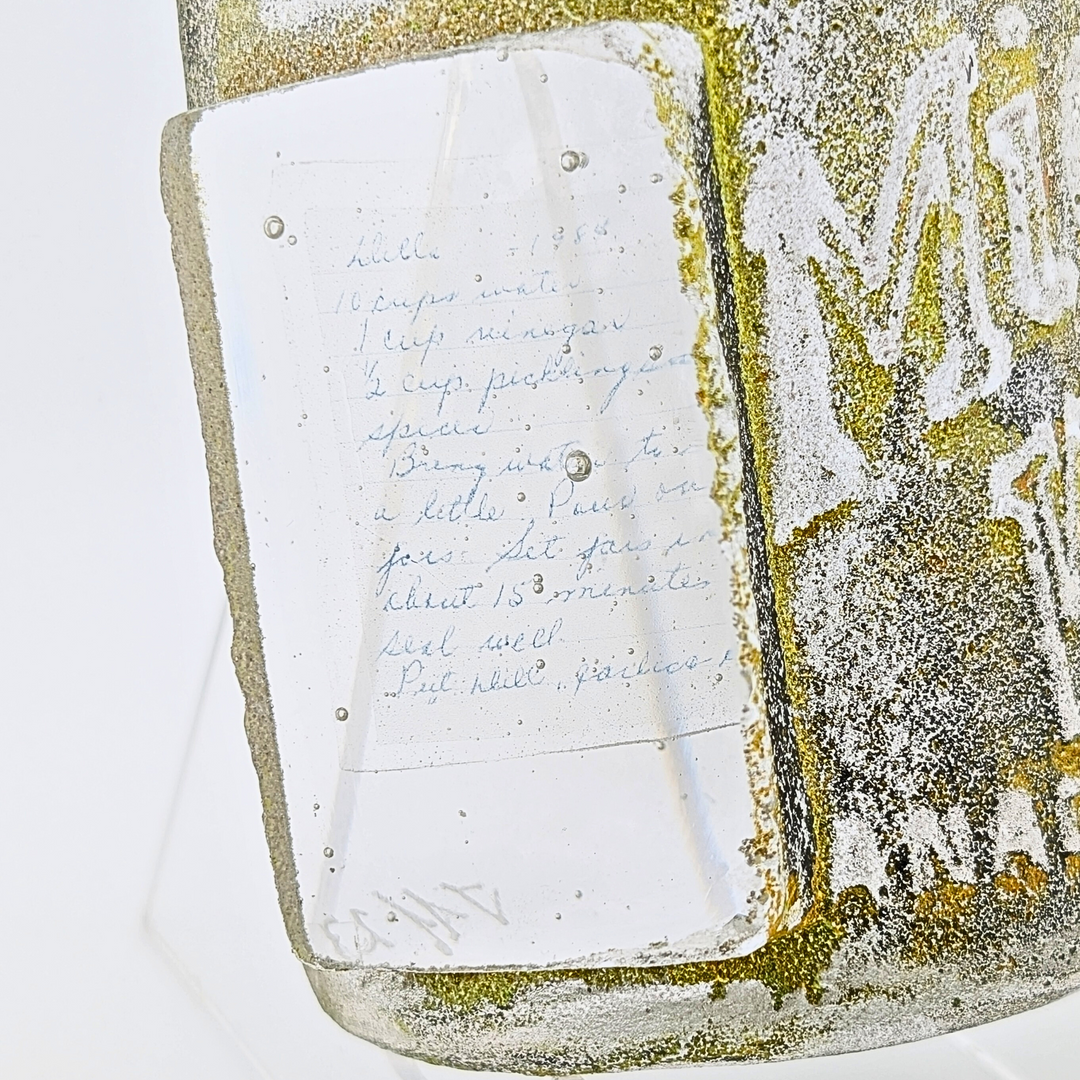 Dills - 1988
10 cups water
1 cup vinegar
1/2 cup pickling
spices
Bring water to
a kettle Pour on
jars. Set jars in
about 15 minutes
seal well
Put dill, garlic
Mi
ANA